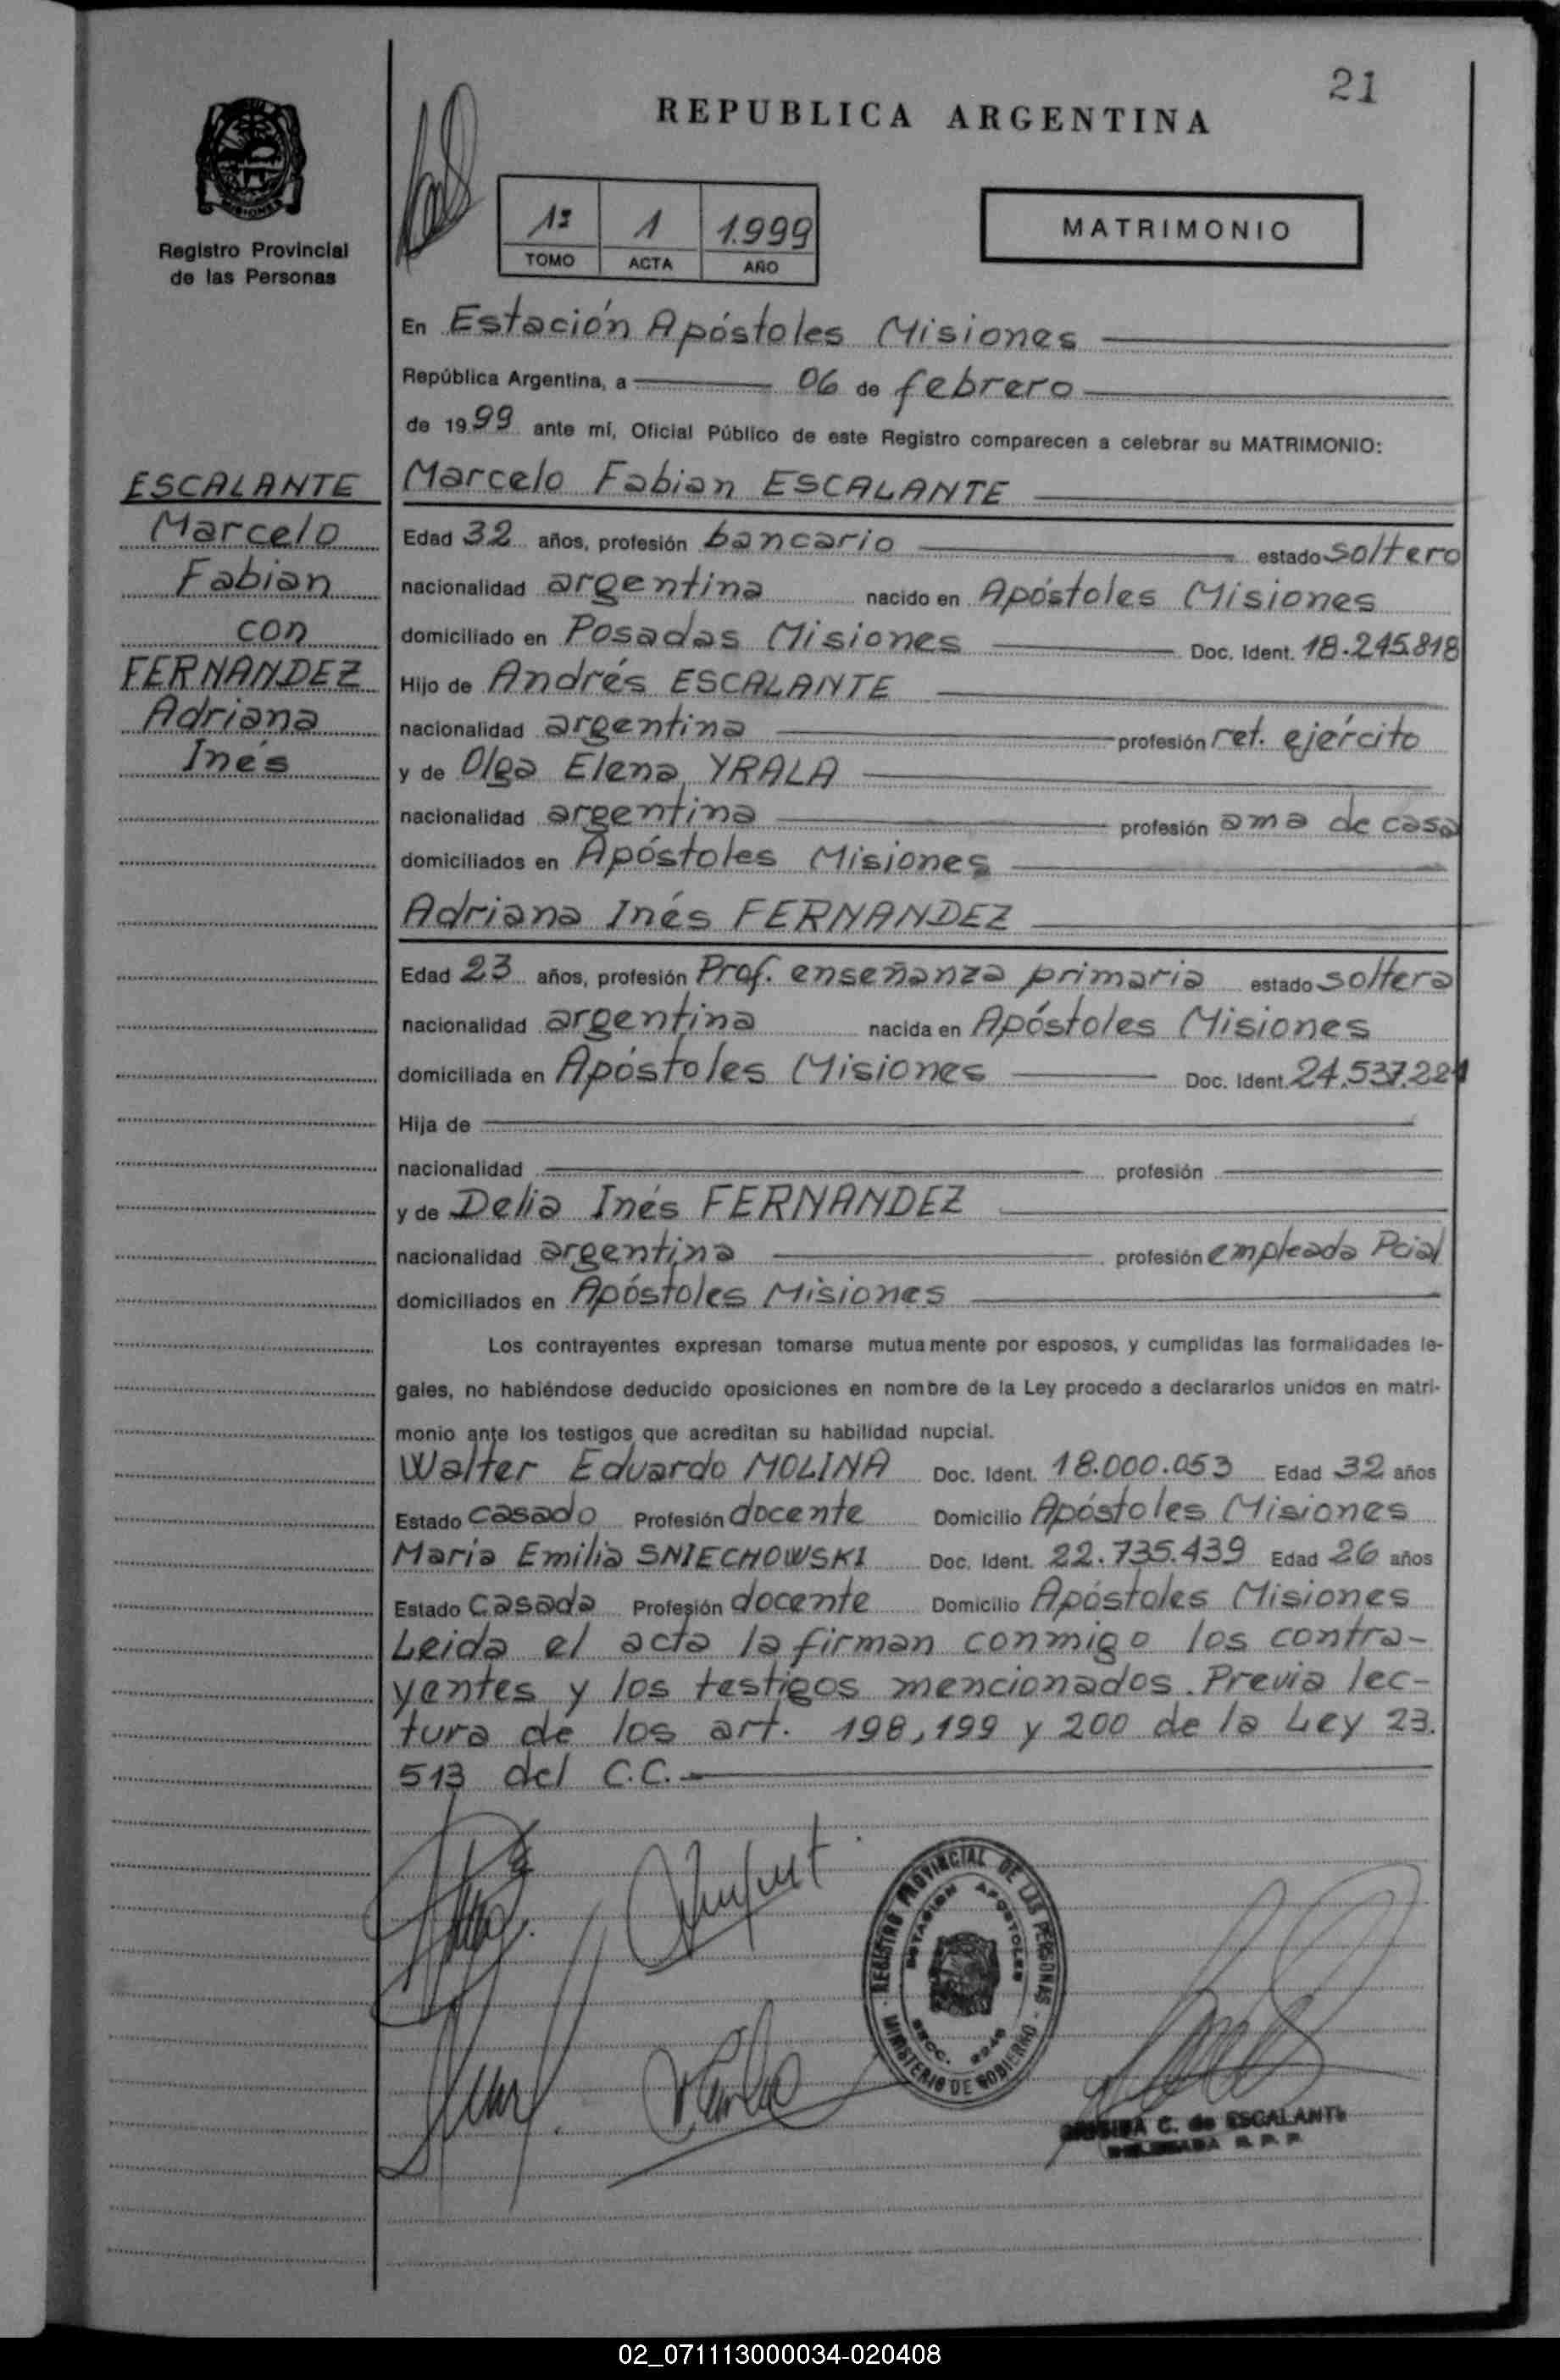 21
REPUBLICA ARGENTINA
Registro Provincial
de las Personas
1º 1 1.999
TOMO ACTA AÑO
MATRIMONIO
En Estación Apóstoles Misiones
República Argentina, a 06 de febrero
de 1999 ante mí, Oficial Público de este Registro comparecen a celebrar su MATRIMONIO:
ESCALANTE
Marcelo
Fabian
con
FERNANDEZ
Adriana
Inés
Marcelo Fabian ESCALANTE
Edad 32 años, profesión bancario estado soltero
nacionalidad argentina nacido en Apóstoles Misiones
domiciliado en Posadas Misiones Doc. Ident. 18.245.818
Hijo de Andrés ESCALANTE
nacionalidad argentina profesión ret. ejército
y de Olga Elena YRALA
nacionalidad argentina profesión ama de casa
domiciliados en Apóstoles Misiones
Adriana Inés FERNANDEZ
Edad 23 años, profesión Prof. enseñanza primaria estado soltera
nacionalidad argentina nacida en Apóstoles Misiones
domiciliada en Apóstoles Misiones Doc. Ident. 24.537.221
Hija de
nacionalidad profesión
y de Delia Inés FERNANDEZ
nacionalidad argentina profesión empleada Pcial
domiciliados en Apóstoles Misiones
Los contrayentes expresan tomarse mutuamente por esposos, y cumplidas las formalidades le-
gales, no habiéndose deducido oposiciones en nombre de la Ley procedo a declararlos unidos en matri-
monio ante los testigos que acreditan su habilidad nupcial.
Walter Eduardo MOLINA Doc. Ident. 18.000.053 Edad 32 años
Estado casado Profesión docente Domicilio Apóstoles Misiones
María Emilia SNIECHOWSKI Doc. Ident. 22.735.439 Edad 26 años
Estado casada Profesión docente Domicilio Apóstoles Misiones
Leida el acta la firman conmigo los contra-
yentes y los testigos mencionados. Previa lec-
tura de los art. 198, 199 y 200 de la Ley 23.
513 del C.C.
REGISTRO PROVINCIAL DE LAS PERSONAS
ESTACION APOSTOLES
MINISTERIO DE GOBIERNO
C. de ESCALANTE
02_071113000034-020408